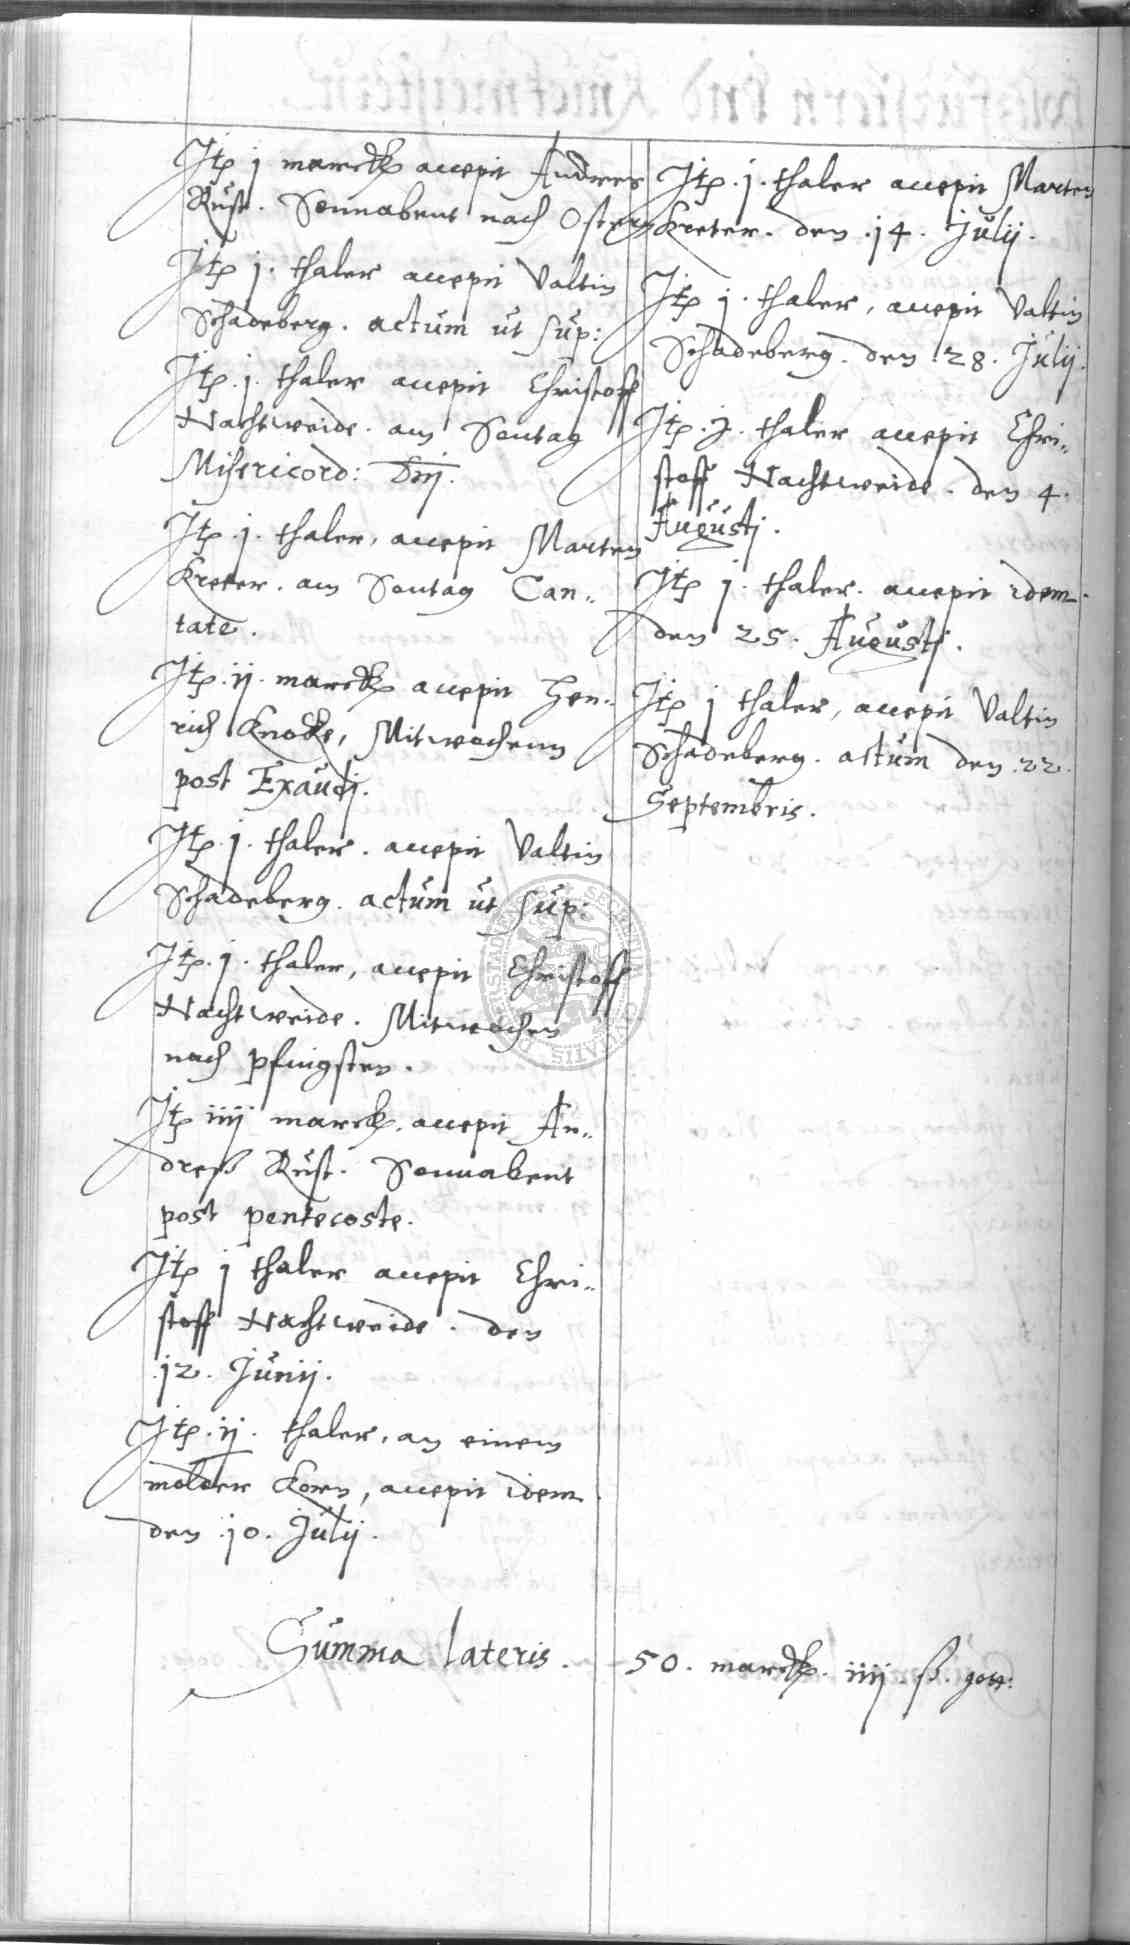 Itp j marck accepit Andres
Rust. Sonnabent nach Ostern
Itp j. thaler accepit Valtin
Schadeberg. actum ut sup:
Itp. j. thaler accepit Christoff
Nachtweide. am Sontag
Misericord: Dnj.
Itp. j. thaler, accepit Marten
Kreter. am Sontag Can-
tate.
Itp. ij. marck accepit Hen-
rich Knocke, Mitwochenn
post Exaudj.
Itp. j. thaler. accepit Valtin
Schadeberg. actum ut sup:
Itp. j. thaler, accepit Christoff
Nachtweide. Mitwochen
nach pfingsten.
Itp iiij marck. accepit An-
dreß Rust. Sonnabent
post pentecoste.
Itp j thaler accepit Chri-
stoff Nachtweide. den
.12. Junij.
Itp. ij. thaler, an einem
molder Korn, accepit idem
den .10. Julij.
Itp. j. thaler accepit Marten
Kreter. den .14. Julij.
Itp j. thaler, accepit Valtin
Schadeberg. den .28. Julij.
Itp. j. thaler accepit Chri-
stoff Nachtweide. den 4.
Augustj.
Itp j. thaler. accepit idem.
den 25. Augustj.
Itp j thaler, accepit Valtin
Schadeberg. actum den .22.
Septembris.
Summa lateris. 50. marck. iiij ß. gott: